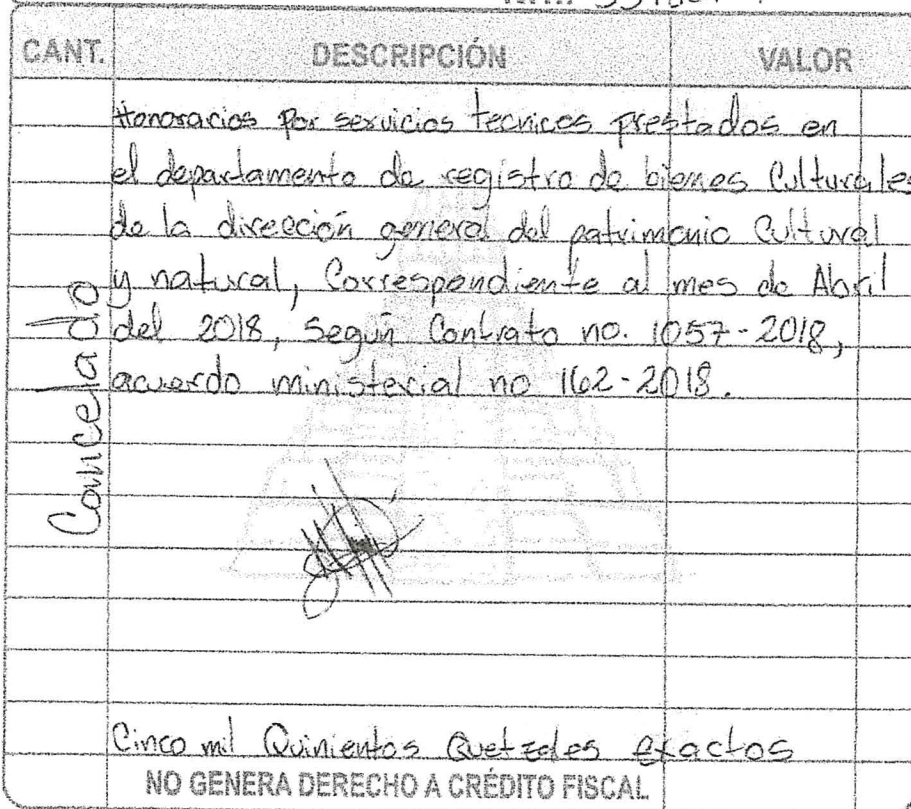 CANT. DESCRIPCIÓN VALOR
Honorarios por servicios tecnicos prestados en
el departamento de registro de bienes Culturales
de la dirección general del patrimonio Cultural
y natural, Correspondiente al mes de Abril
del 2018, Según Contrato no. 1057-2018,
acuerdo ministerial no 162-2018.
Cancelado
Cinco mil Quinientos Quetzales exactos
NO GENERA DERECHO A CRÉDITO FISCAL